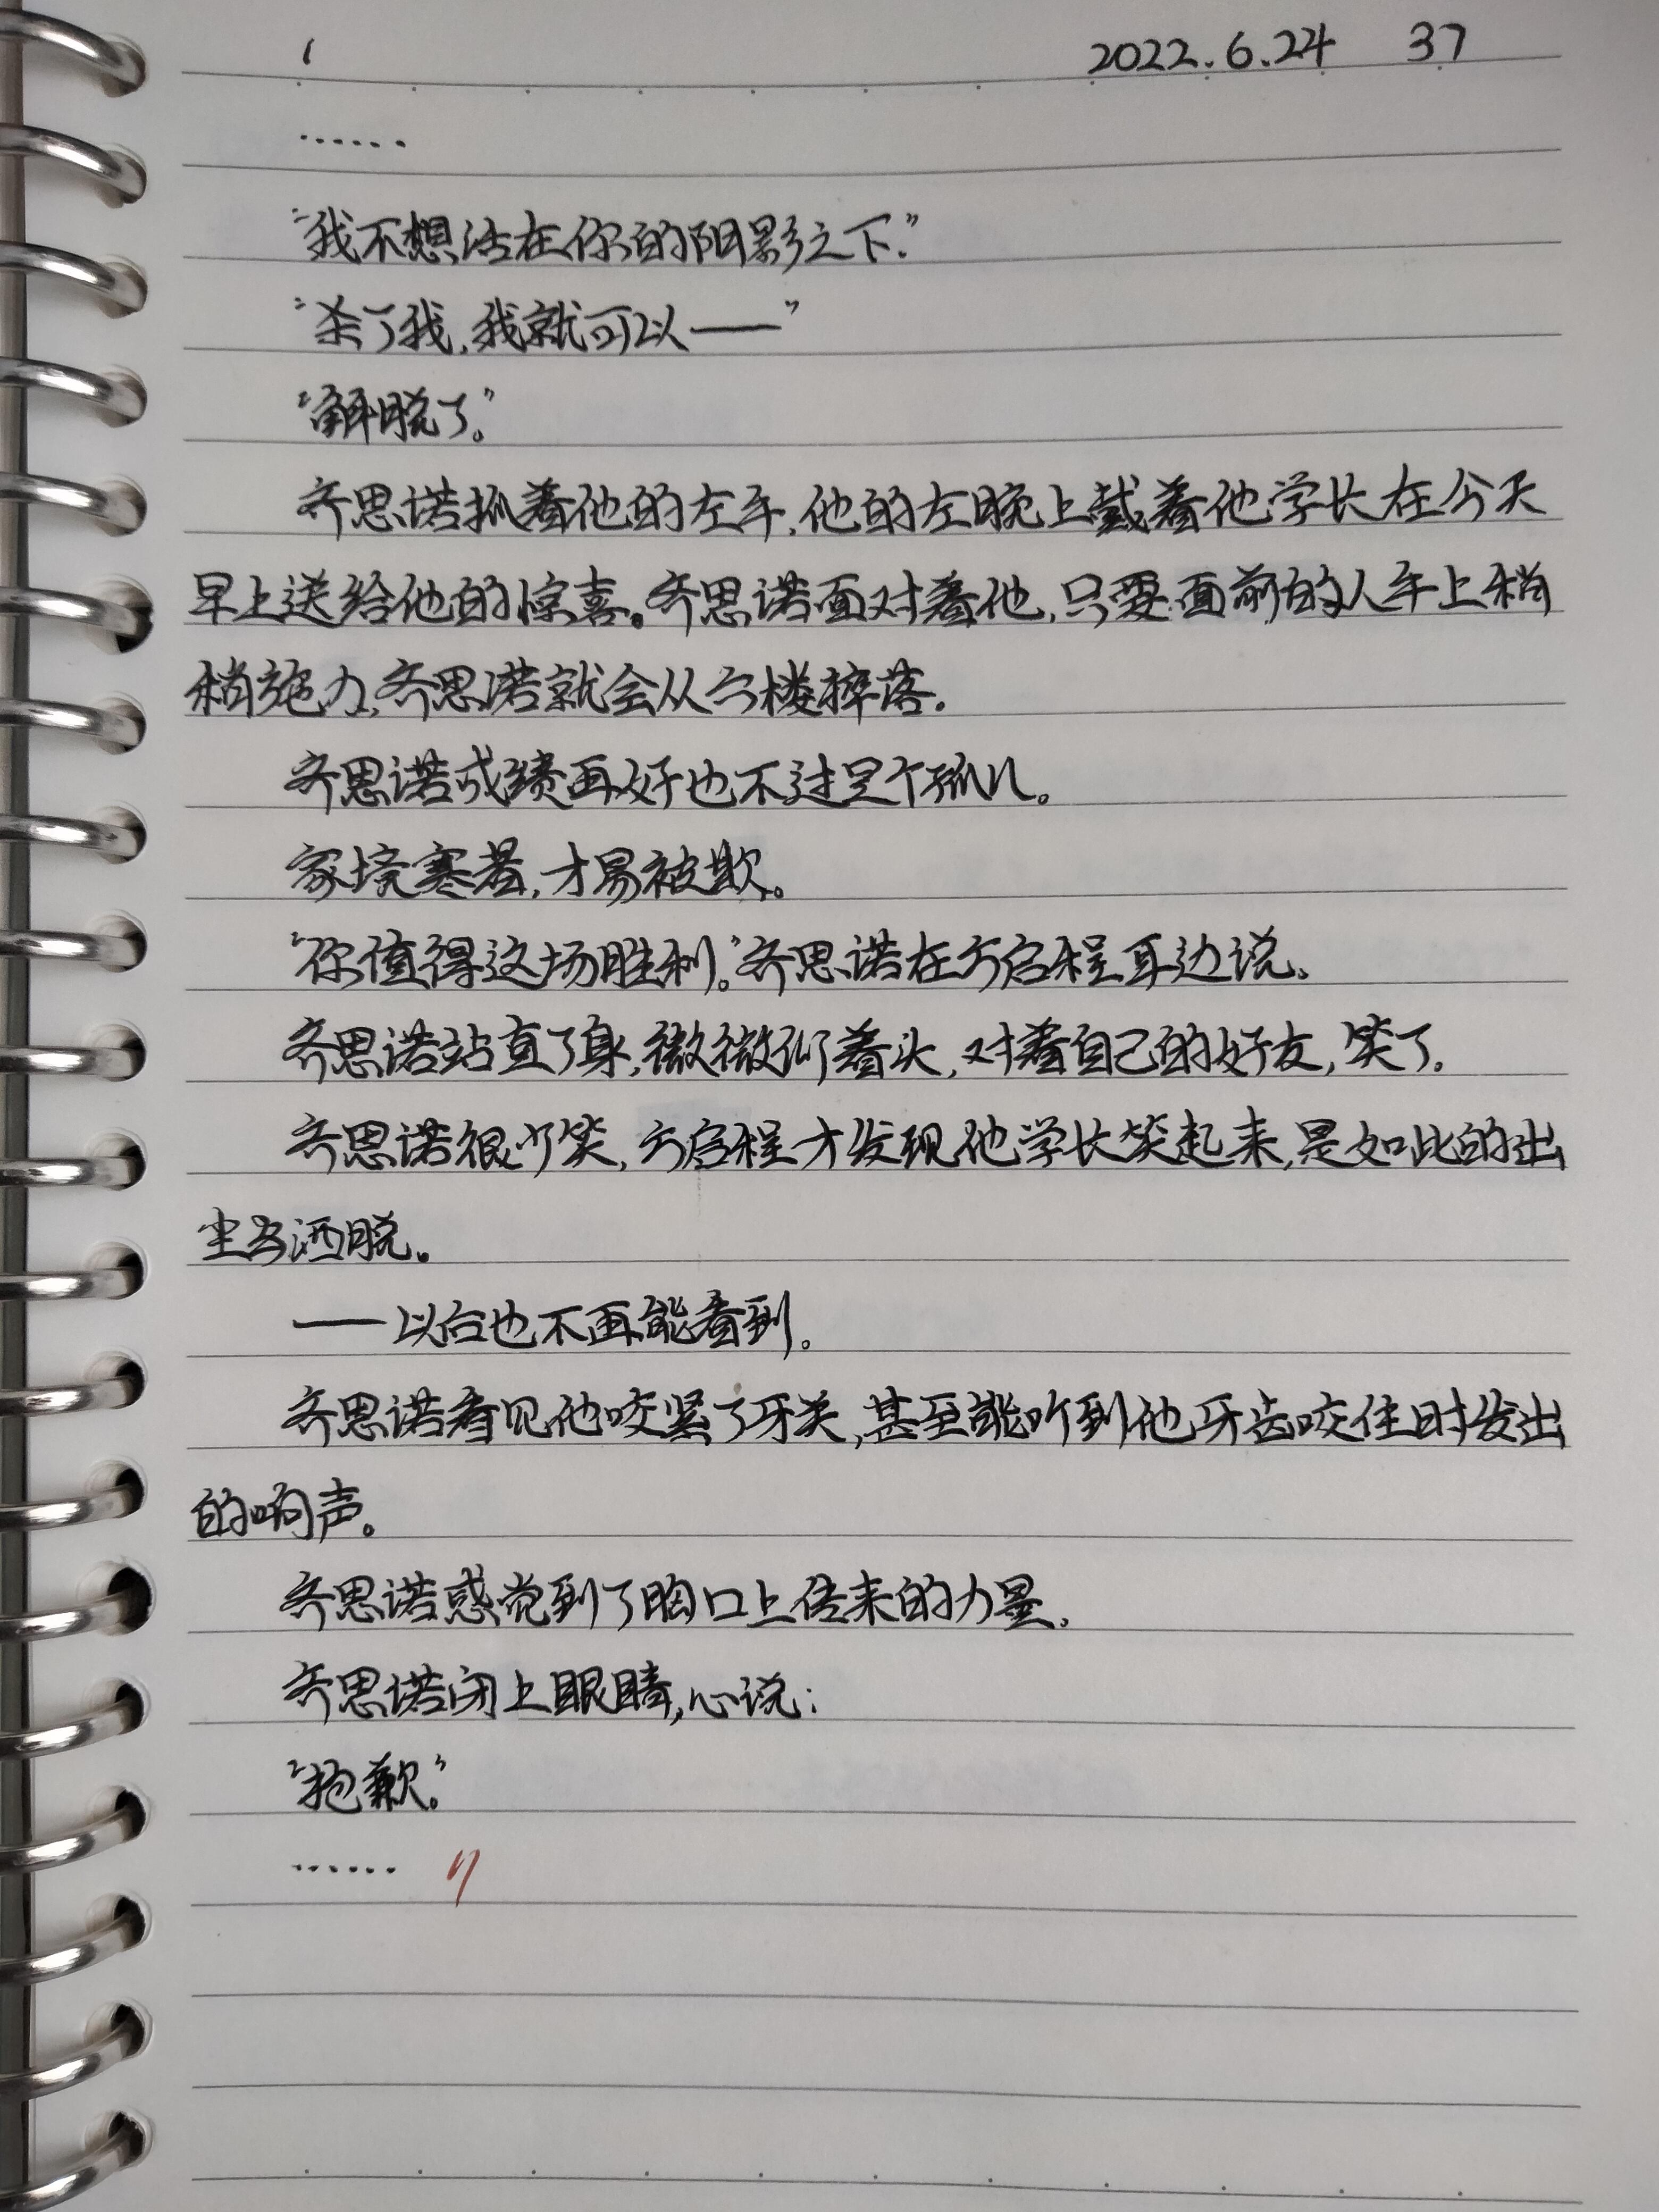 1 2022.6.24 37
……
“我不想活在你的阴影之下.”
“杀了我,我就可以——”
“解脱了。”
齐思诺抓着他的左手,他的左腕上戴着他学长在今天
早上送给他的惊喜。齐思诺面对着他,只要面前的人手上稍
稍施力,齐思诺就会从六楼摔落.
齐思诺成绩再好也不过是个孤儿。
家境寒着,才易被欺。
“你值得这场胜利。”齐思诺在亓启程耳边说。
齐思诺站直了身,微微仰着头,对着自己的好友,笑了.
齐思诺很少笑,亓启程才发现他学长笑起来,是如此的出
尘与洒脱。
——以后也不再能看到。
齐思诺看见他咬紧了牙关,甚至能听到他牙齿咬住时发出
的响声。
齐思诺感觉到了胸口上传来的力量.
齐思诺闭上眼睛,心说:
“抱歉.”
……